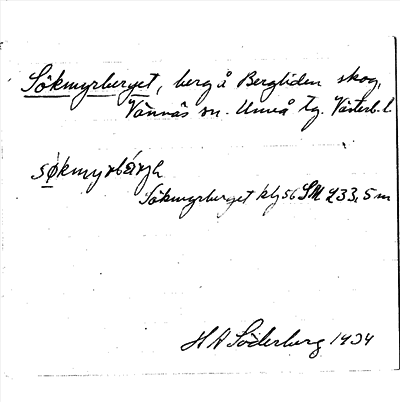 Sökmyrberget, berg å Bergliden skog,
Vännäs sn. Umeå tg. Västerb. l.
søkmyrbárjh
Sökmyrberget kbl 56 SM 233,5 m
H A Söderberg 1934